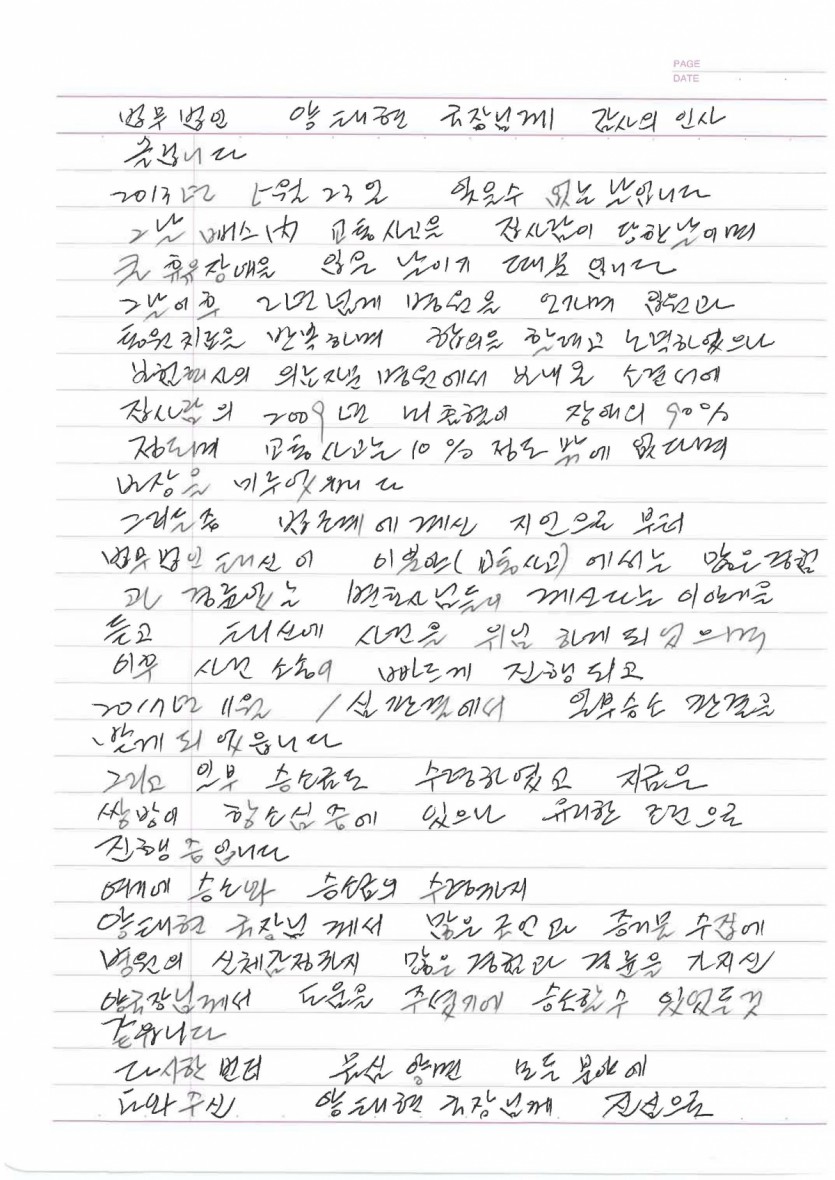 PAGE
DATE
법무법인 양태현 국장님께 감사의 인사
드립니다
2013년 5월 23일 잊을수 없는 날입니다
그날 버스 교통사고를 집사람이 당한날이며
큰 후유장애를 입은 날이기 때문입니다
그날이후 2년넘게 병원을 입원과
통원치료를 반복하며 합의를 할려고 노력하였으나
보험회사의 의뢰 병원에서 보내온 소견서에
집사람의 2009년 뇌출혈이 장애의 90%
정도며 교통사고는 10% 정도 밖에 없다며
보상을 미루어 왔습니다
그러든중 법조계에 계신 지인으로 부터
법무법인 태신이 이분야(교통사고)에서는 많은경험
과 경륜있는 변호사님들이 계신다는 이야기를
듣고 태신에 사건을 위임 하게 되었으며
이후 사건 소송이 빠르게 진행되고
2017년 11월 1심판결에서 일부승소 판결을
받게 되었읍니다
그리고 일부 승소금도 수령하였고 지금은
쌍방이 항소심중에 있으나 유리한 조건으로
진행중입니다
여기에 승소와 승소금의 수령까지
양태현 국장님 께서 많은 조언과 증거물 수집에
병원의 신체감정까지 많은경험과 경륜을 가지신
양국장님께서 도움을 주셨기에 승소할수 있었든것
같읍니다
다시한번더 물심양면 모든 분야에
도와주신 양태현 국장님께 진심으로